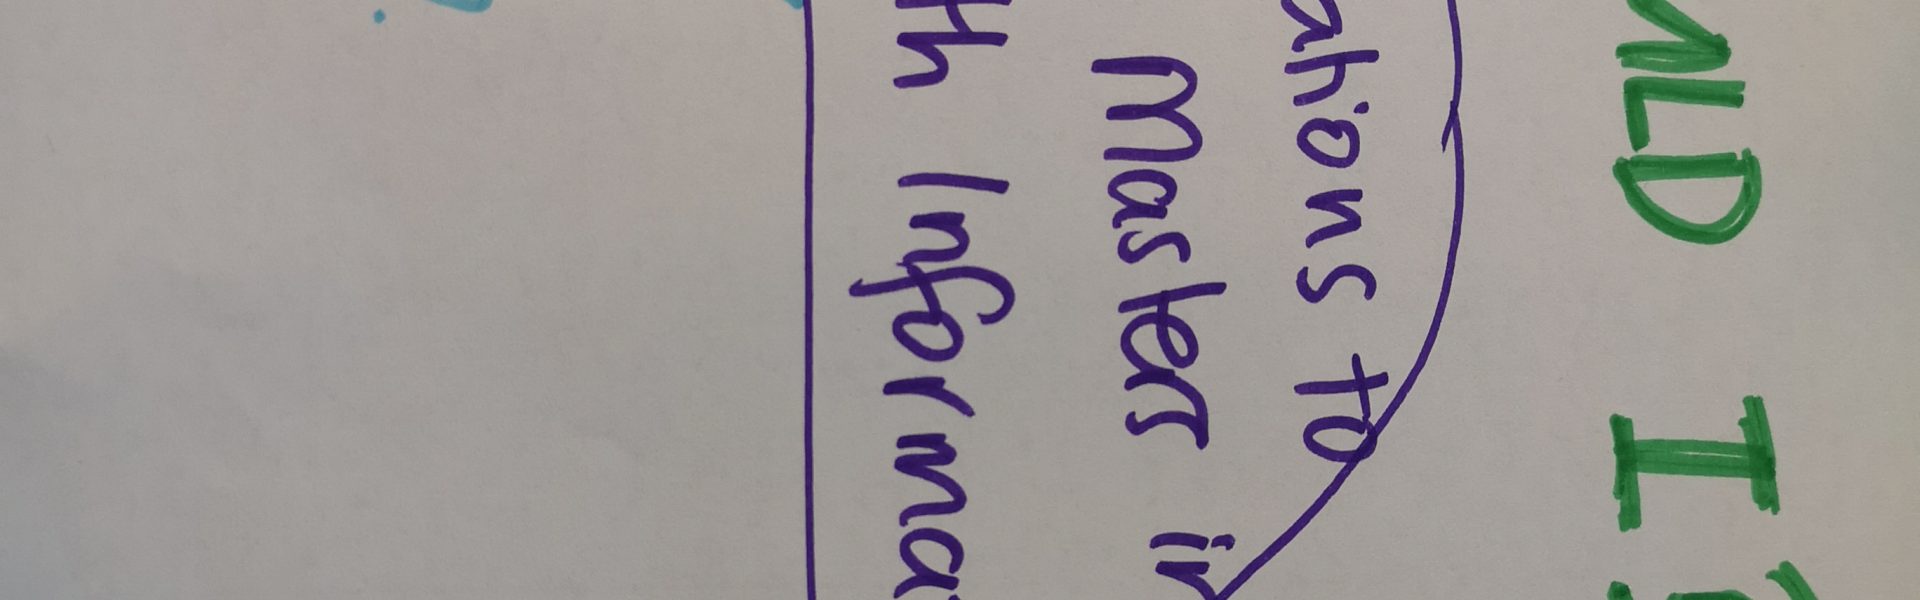 ULD I
ations to
Masters in
th Informa